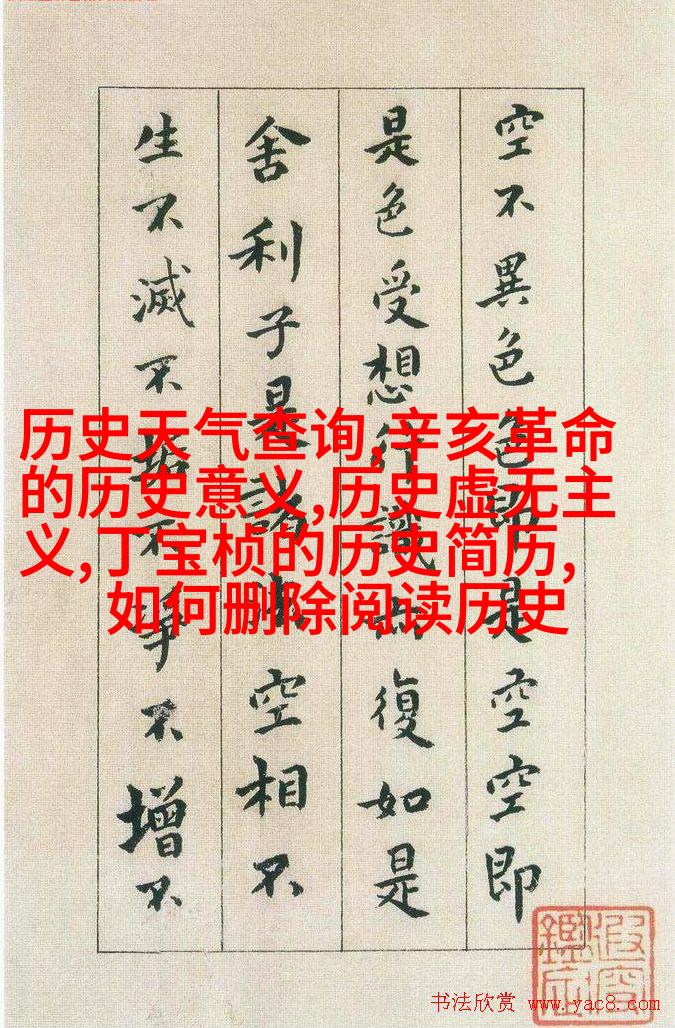 历史天气查询,辛亥革命
的历史意义,历史虚无主
义,丁宝桢的历史简历,
如何删除阅读历史
空不異色色即是空空即
是色受想行識亦復如是
舍利子是諸法空相不
生不滅不垢不淨不增不
书法欣赏 www.yac8.com